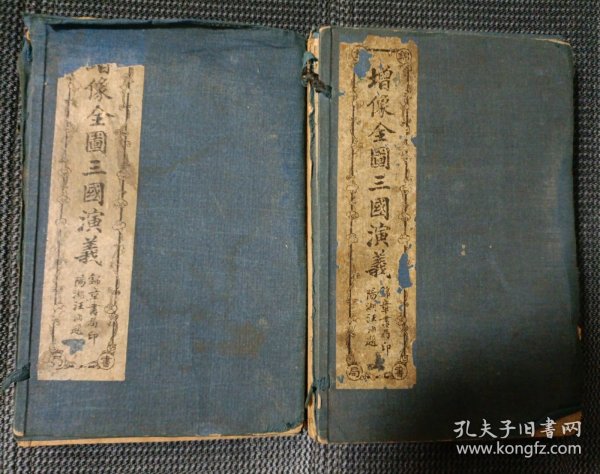 增像全圖三國演義
錦章書局印
陽湖汪洵題
書
局
增像全圖三國演義
錦章書局印
陽湖汪洵題
書
局
孔夫子旧书网
www.kongfz.com